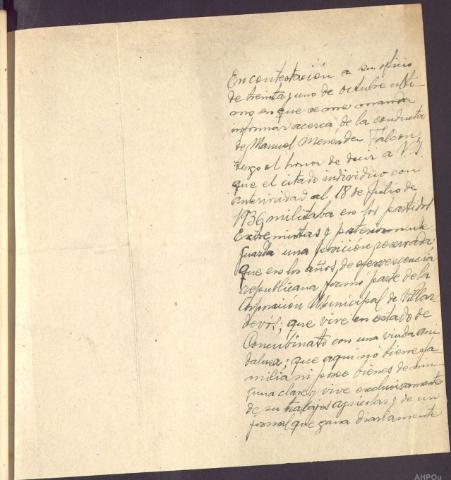 En contestación a su oficio
de treinta y uno de octubre ulti-
mo en que se me manda
informar acerca de la conducta
de Manuel Menendez Falcon,
tengo el honor de decir a V.S.
que el citado individuo con
anterioridad al 18 de Julio de
1936 militaba en los partidos
Extremistas y posteriormente
guarda una posición reservada;
que en los años de efervescencia
republicana formo parte de la
Corporación Municipal de Villar
devós; que vive en estado de
Concubinato con una viuda an
daluza; que aqui no tiene fa
milia ni posee bienes de nin
guna clase y vive exclusivamente
de su trabajos agricolas y de un
jornal que gana diariamente
AHPOu